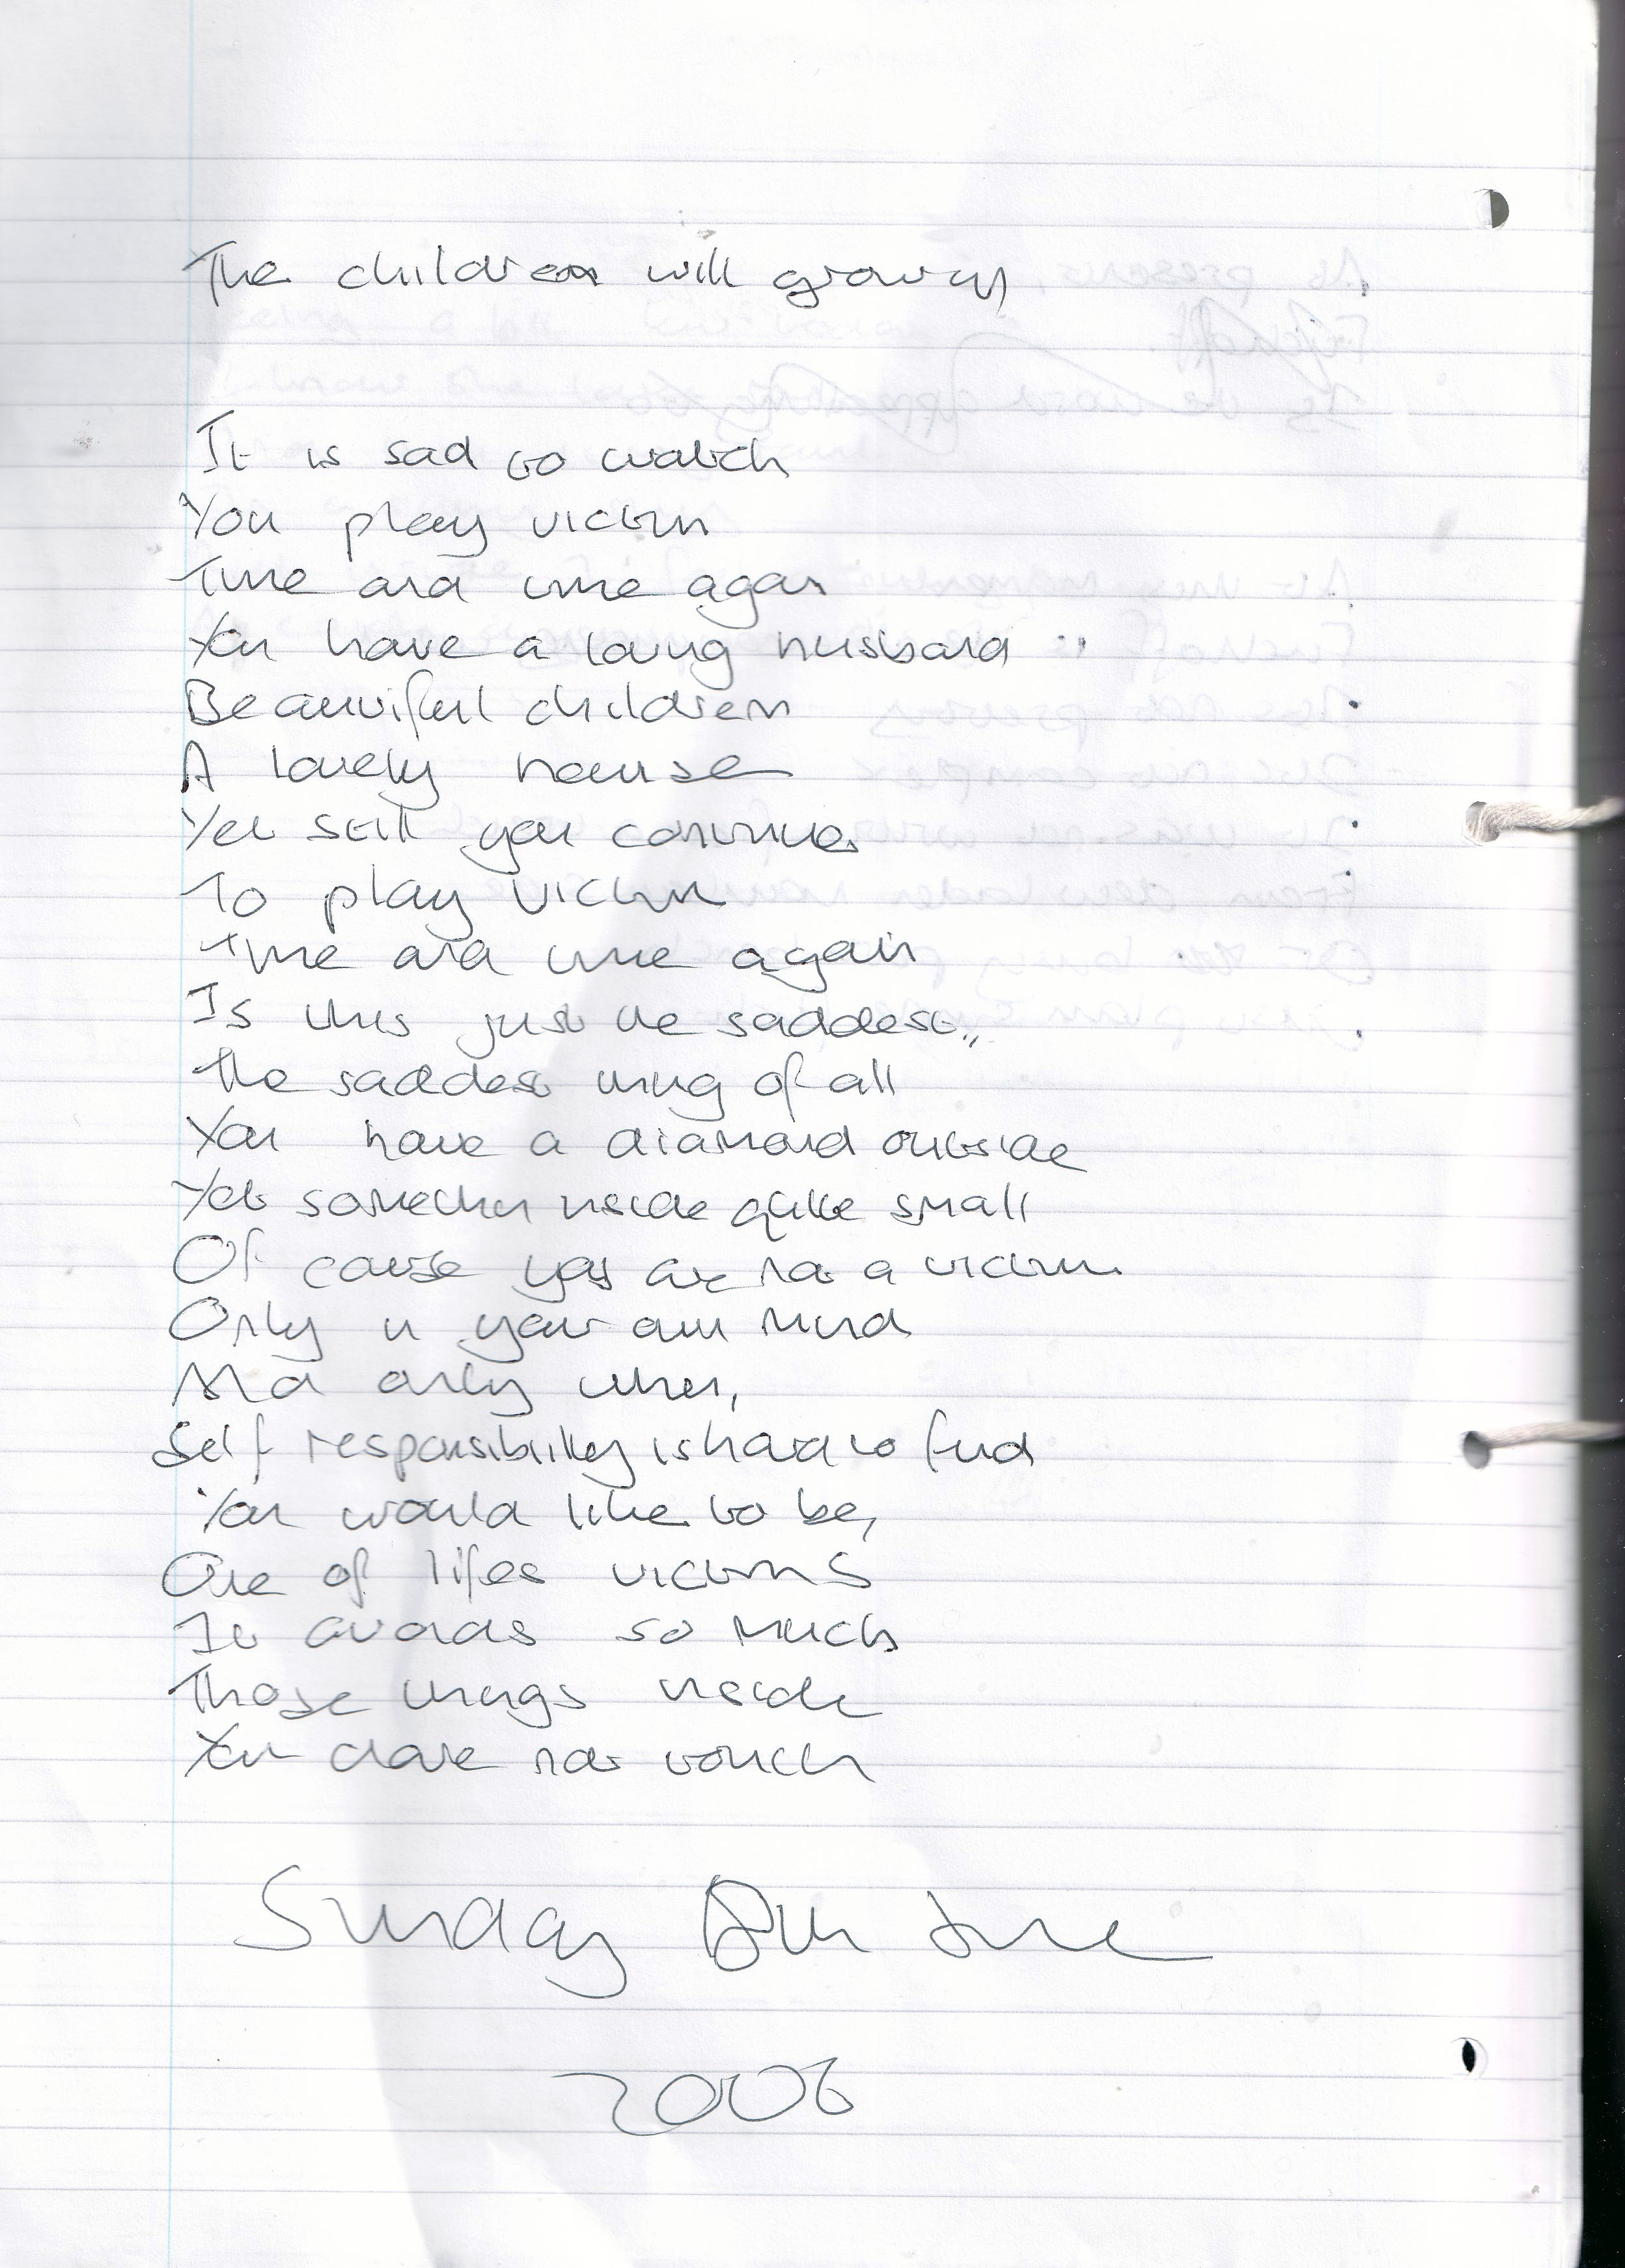 The children will grow up
It is sad to watch
You play victim
Time and time again
You have a loving husband
Beautiful children
A lovely house
Yet still you continue
To play victim
Time and time again
Is this just the saddest,,
The saddest thing of all
You have a diamond outside
Yet somethin inside quite small
Of cause you are not a victim
Only in your own mind
And only when,
Self responsibility is hard to find
You would like to be,
One of lifes victims
It avoids so much
Those things inside
You dare not touch
Sunday June
2006